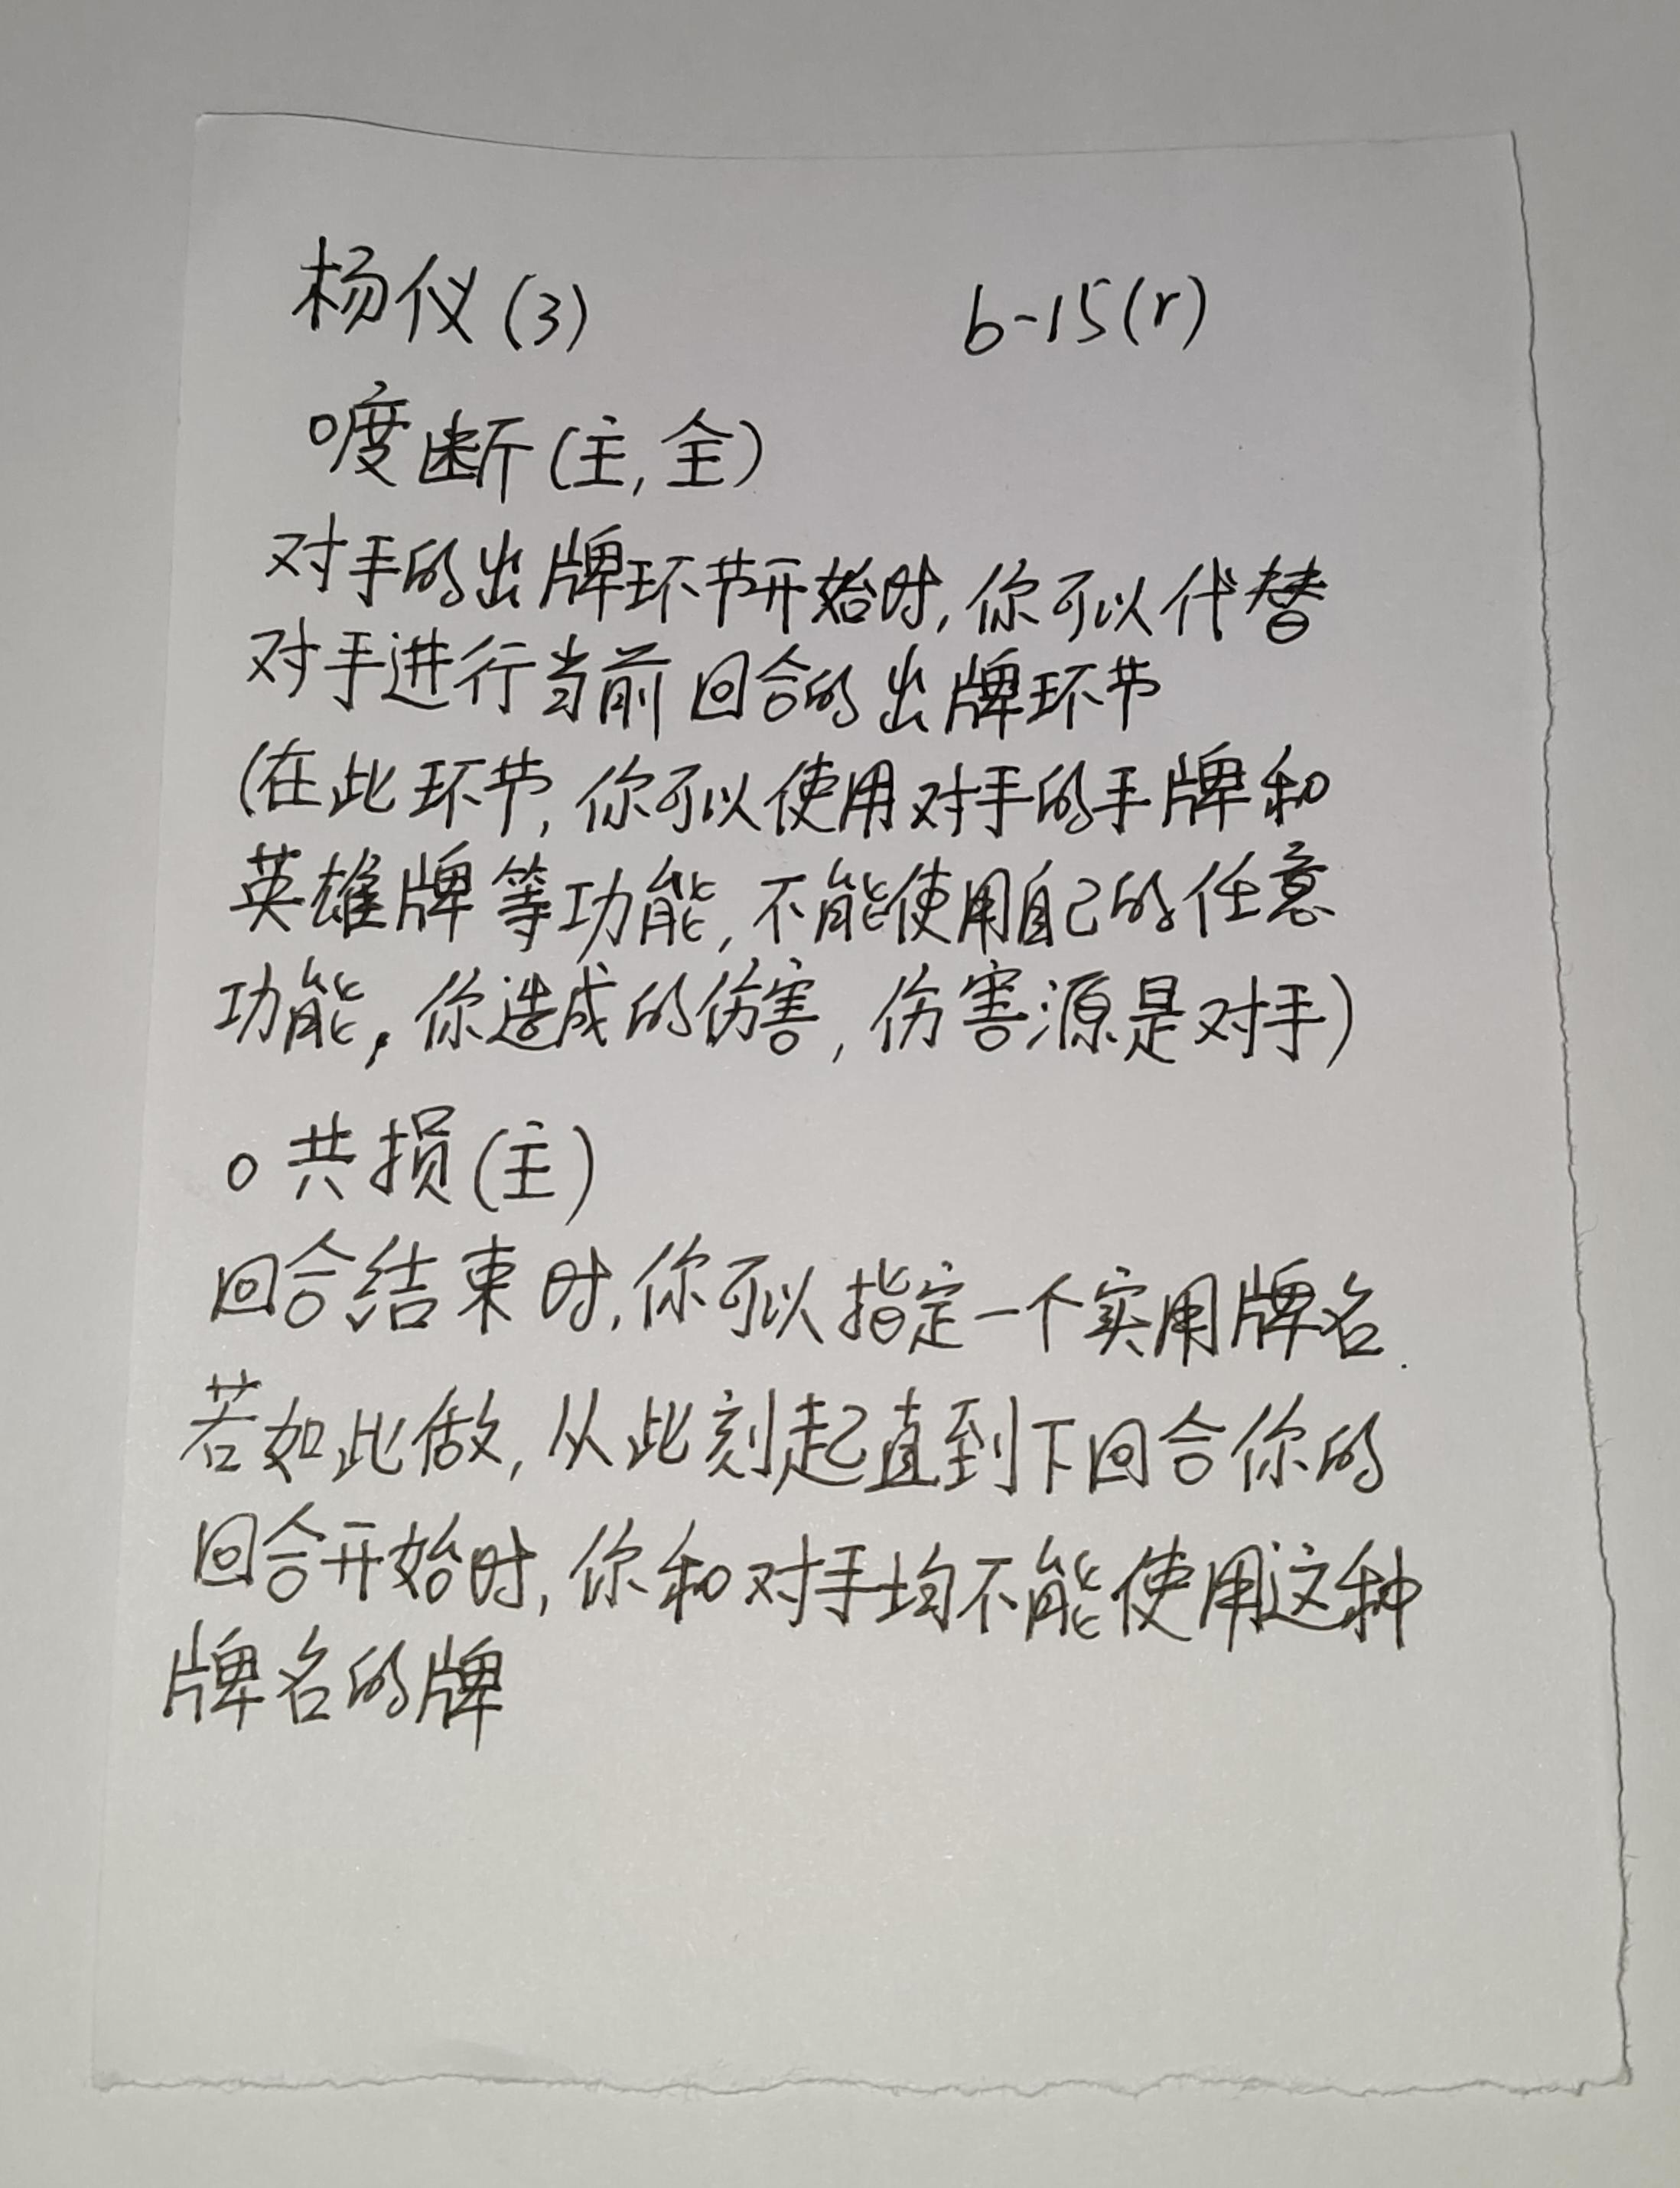 杨仪(3) b-15(r)
○度断(主,全)
对手的出牌环节开始时,你可以代替
对手进行当前回合的出牌环节
(在此环节,你可以使用对手的手牌和
英雄牌等功能,不能使用自己的任意
功能,你造成的伤害,伤害源是对手)
○共损(主)
回合结束时,你可以指定一个实用牌名.
若如此做,从此刻起直到下回合你的
回合开始时,你和对手均不能使用这种
牌名的牌